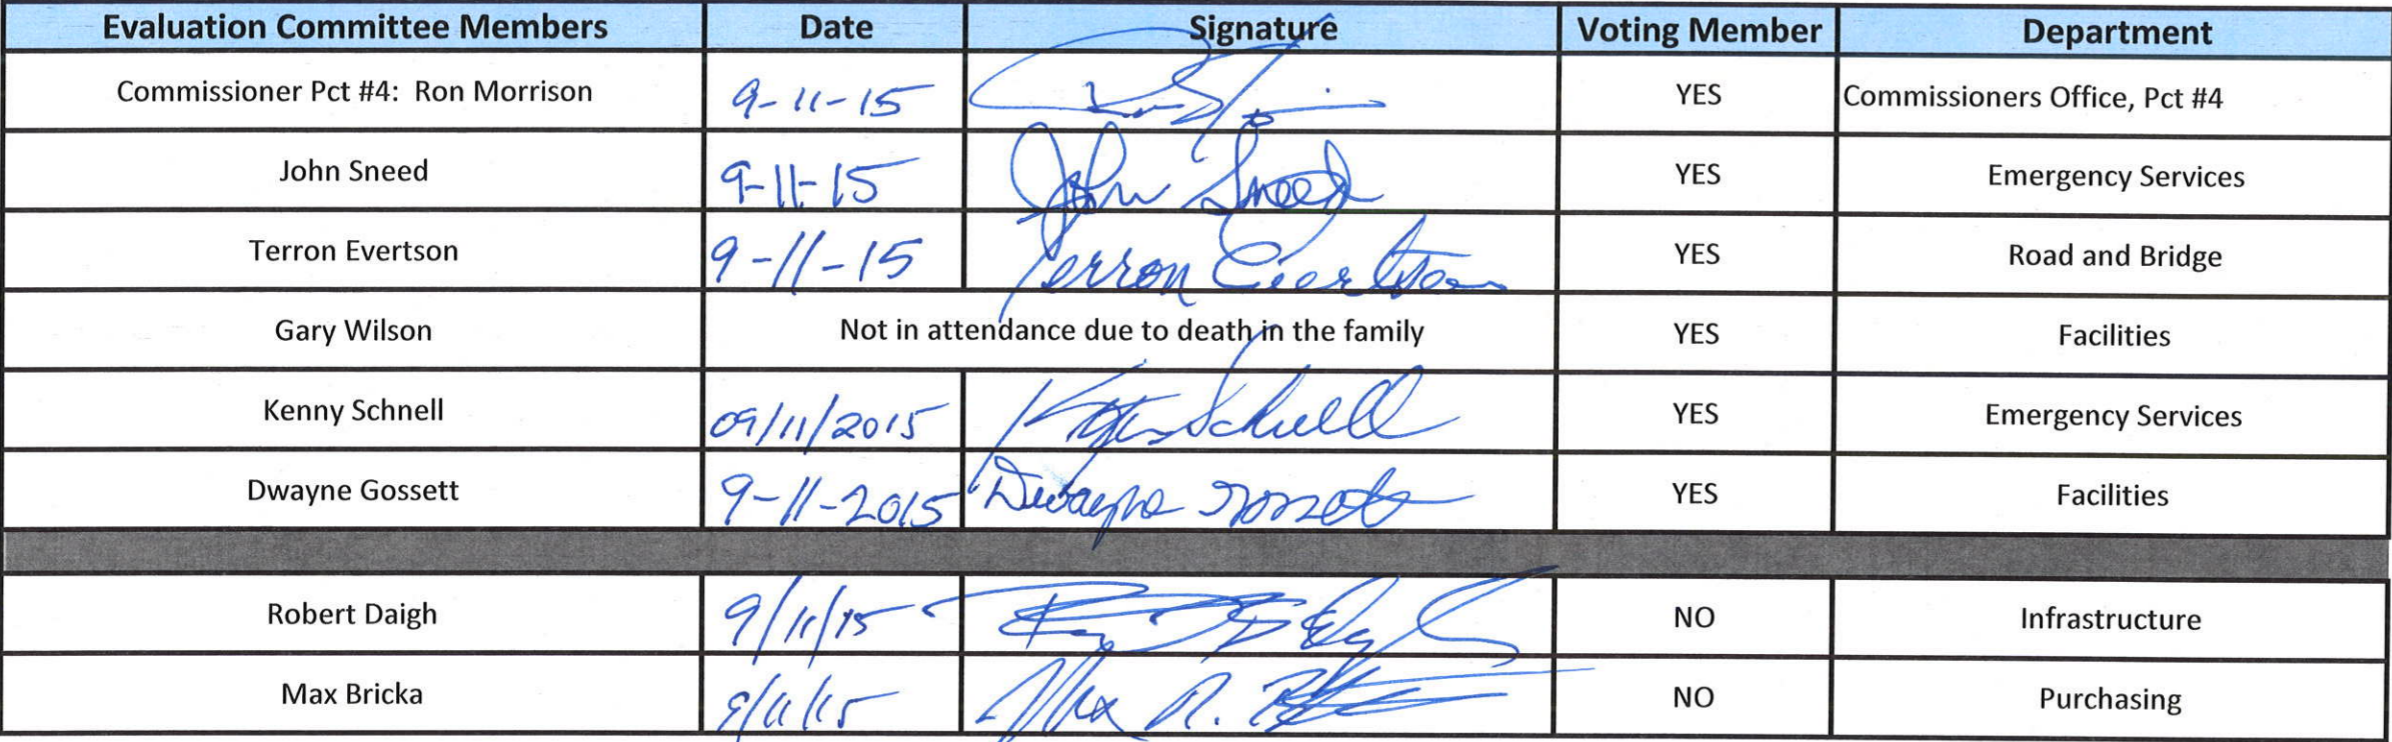 Evaluation Committee Members Date Signature Voting Member Department
Commissioner Pct #4: Ron Morrison 9-11-15 YES Commissioners Office, Pct #4
John Sneed 9-11-15 John Sneed YES Emergency Services
Terron Evertson 9-11-15 Terron Evertson YES Road and Bridge
Gary Wilson Not in attendance due to death in the family YES Facilities
Kenny Schnell 09/11/2015 Schnell YES Emergency Services
Dwayne Gossett 9-11-2015 Dwayne Gossett YES Facilities
Robert Daigh 9/11/15 NO Infrastructure
Max Bricka 9/11/15 Max R. NO Purchasing